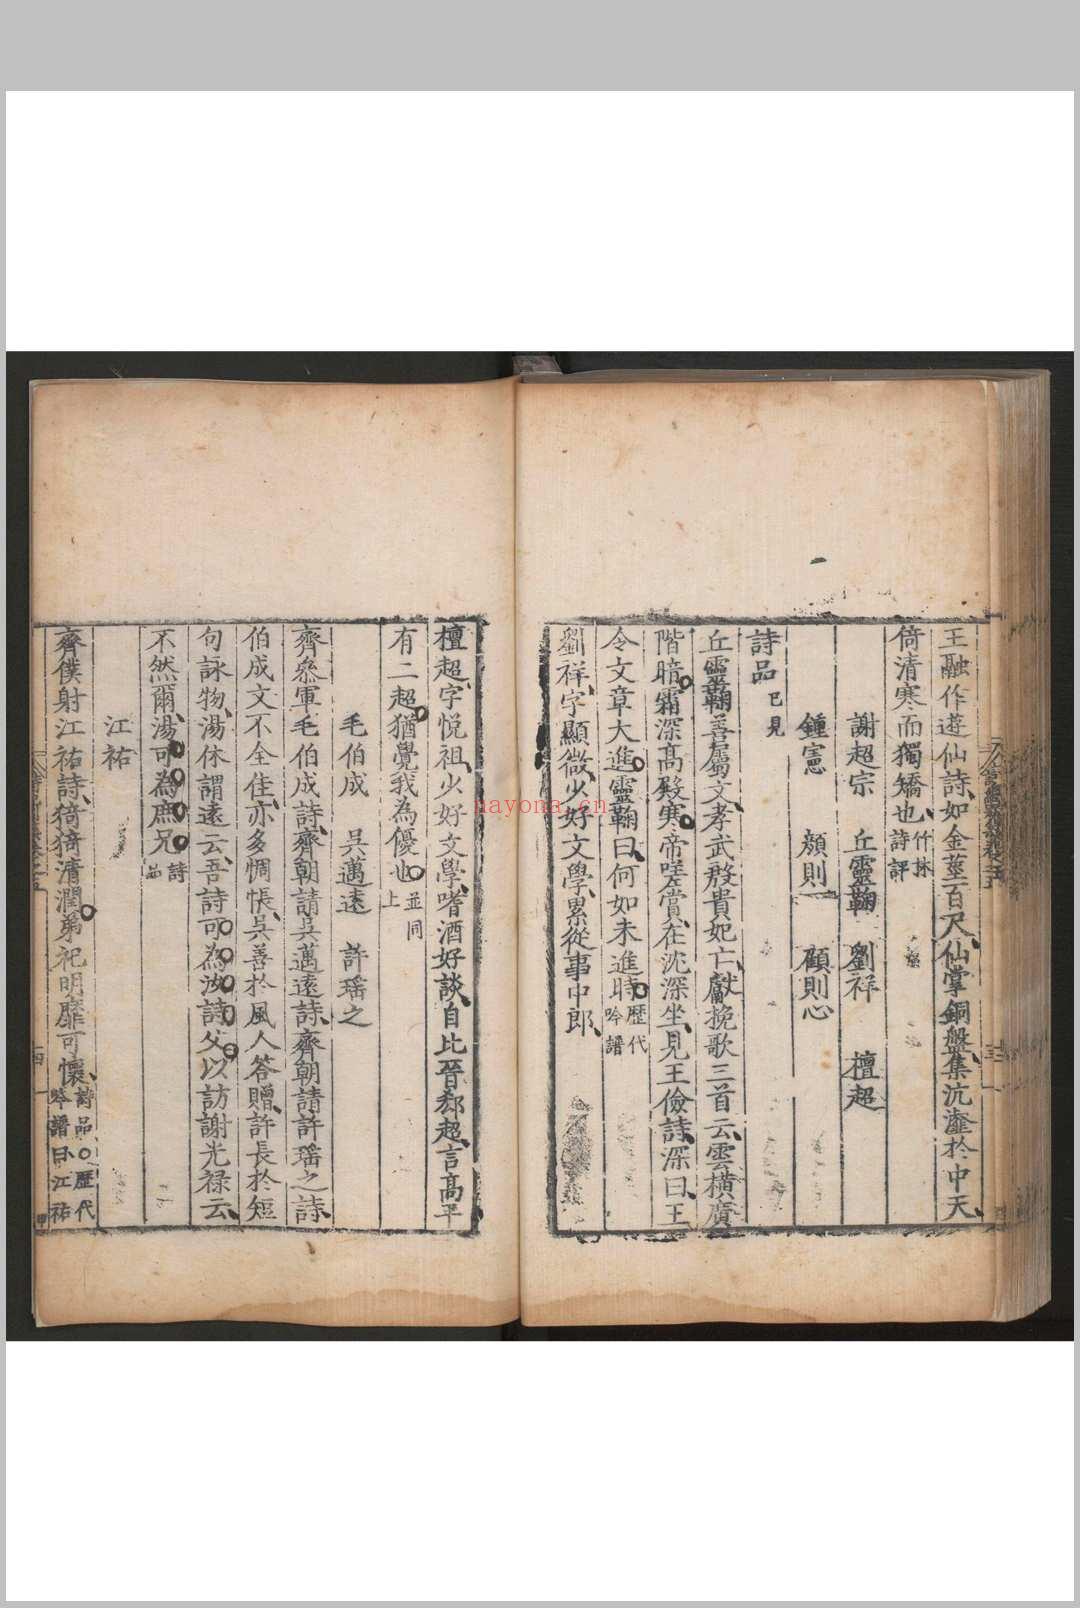 王融作遊仙詩如金莖百尺仙掌銅盤集沆瀣於中天
倚清寒而獨矯也竹林詩評
謝超宗 丘靈鞠 劉祥 檀超
鍾憲 顔則 顧則心
詩品已見
丘靈鞠善屬文孝武殷貴妃亡獻挽歌三首云雲橫廣
階暗霜深高殿寒帝嗟賞在沈深坐見王儉詩深曰王
令文章大進靈鞠曰何如未進時歷代吟譜
劉祥字顯微少好文學累從事中郎
檀超字悅祖少好文學嗜酒好談自比晉郗超言高平
有二超猶覺我為優也並同上
毛伯成 吳邁遠 許瑤之
齊叅軍毛伯成詩齊朝請吳邁遠詩齊朝請許瑤之詩
伯成文不全佳亦多惆悵吳善於風人答贈許長於短
句詠物湯休謂遠云吾詩可為汝詩父以訪謝光祿云
不然爾湯可為庶兄詩品
江祐
齊僕射江祐詩猗猗清潤弟祀明靡可懷詩品○歷代吟譜曰江祐
nayona.cn